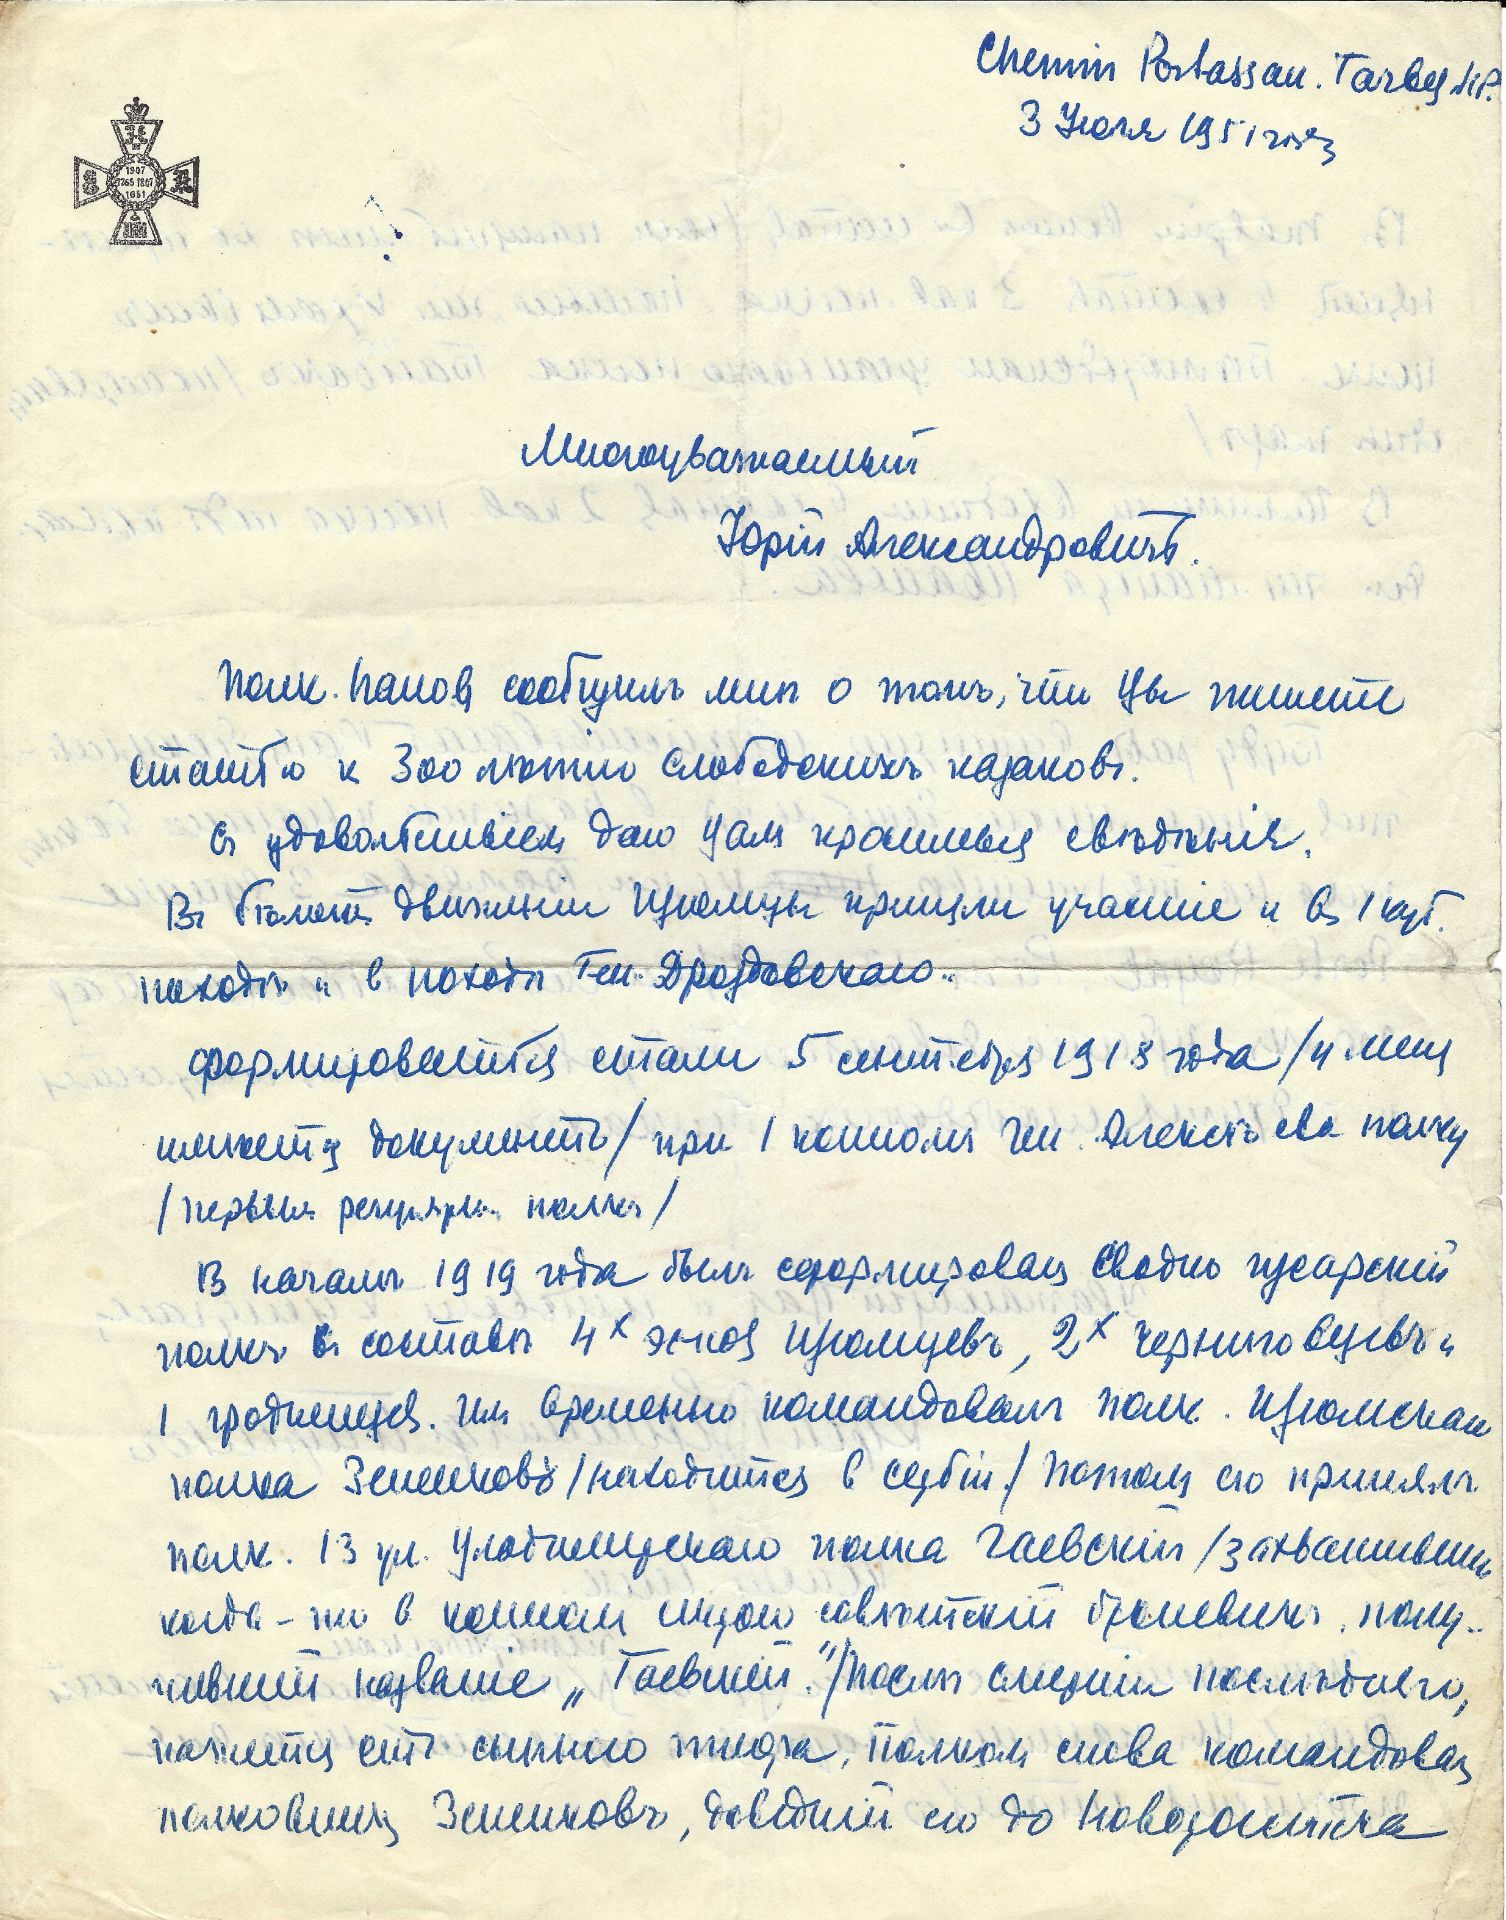 Chemin Portassau. Tarbes H.P.
3 Іюля 1951 года
1907
1765 1807
1651
Многоуважаемый
Юрій Александровичъ.
Полк. Попов сообщилъ мнѣ о томъ, что Вы пишете
статью к 300 лѣтію Слободскихъ казаковъ.
Съ удовольствіемъ даю Вам краткія свѣдѣнія.
Въ бѣломъ движеніи Изюмцы приняли участіе и въ 1 куб.
походѣ и в походѣ Ген. Дроздовскаго.
Формироваться стали 5 сентября 1918 года /у меня
имѣется документъ/ при 1 конномъ ген. Алексѣева полку
/первый регулярн. полкъ/
В началѣ 1919 года былъ сформированъ Сводно гусарскій
полкъ въ составѣ 4х эск-ов Изюмцевъ, 2х Черниговцевъ и
1 гродненцев. Им временно командовалъ полк. Изюмскаго
полка Зененковъ /находится в Сербіи/ Потомъ его принялъ
полк. 13 ул. Владимирскаго полка Гаевскій /захватившій
когда-то в конном строю совѣтскій броневикъ, полу-
чившій названіе „Гаевскій."/ Послѣ смерти послѣдняго,
кажется отъ сыпного тифа, полком снова командовал
полковникъ Зененковъ, доведшій его до Новороссійска